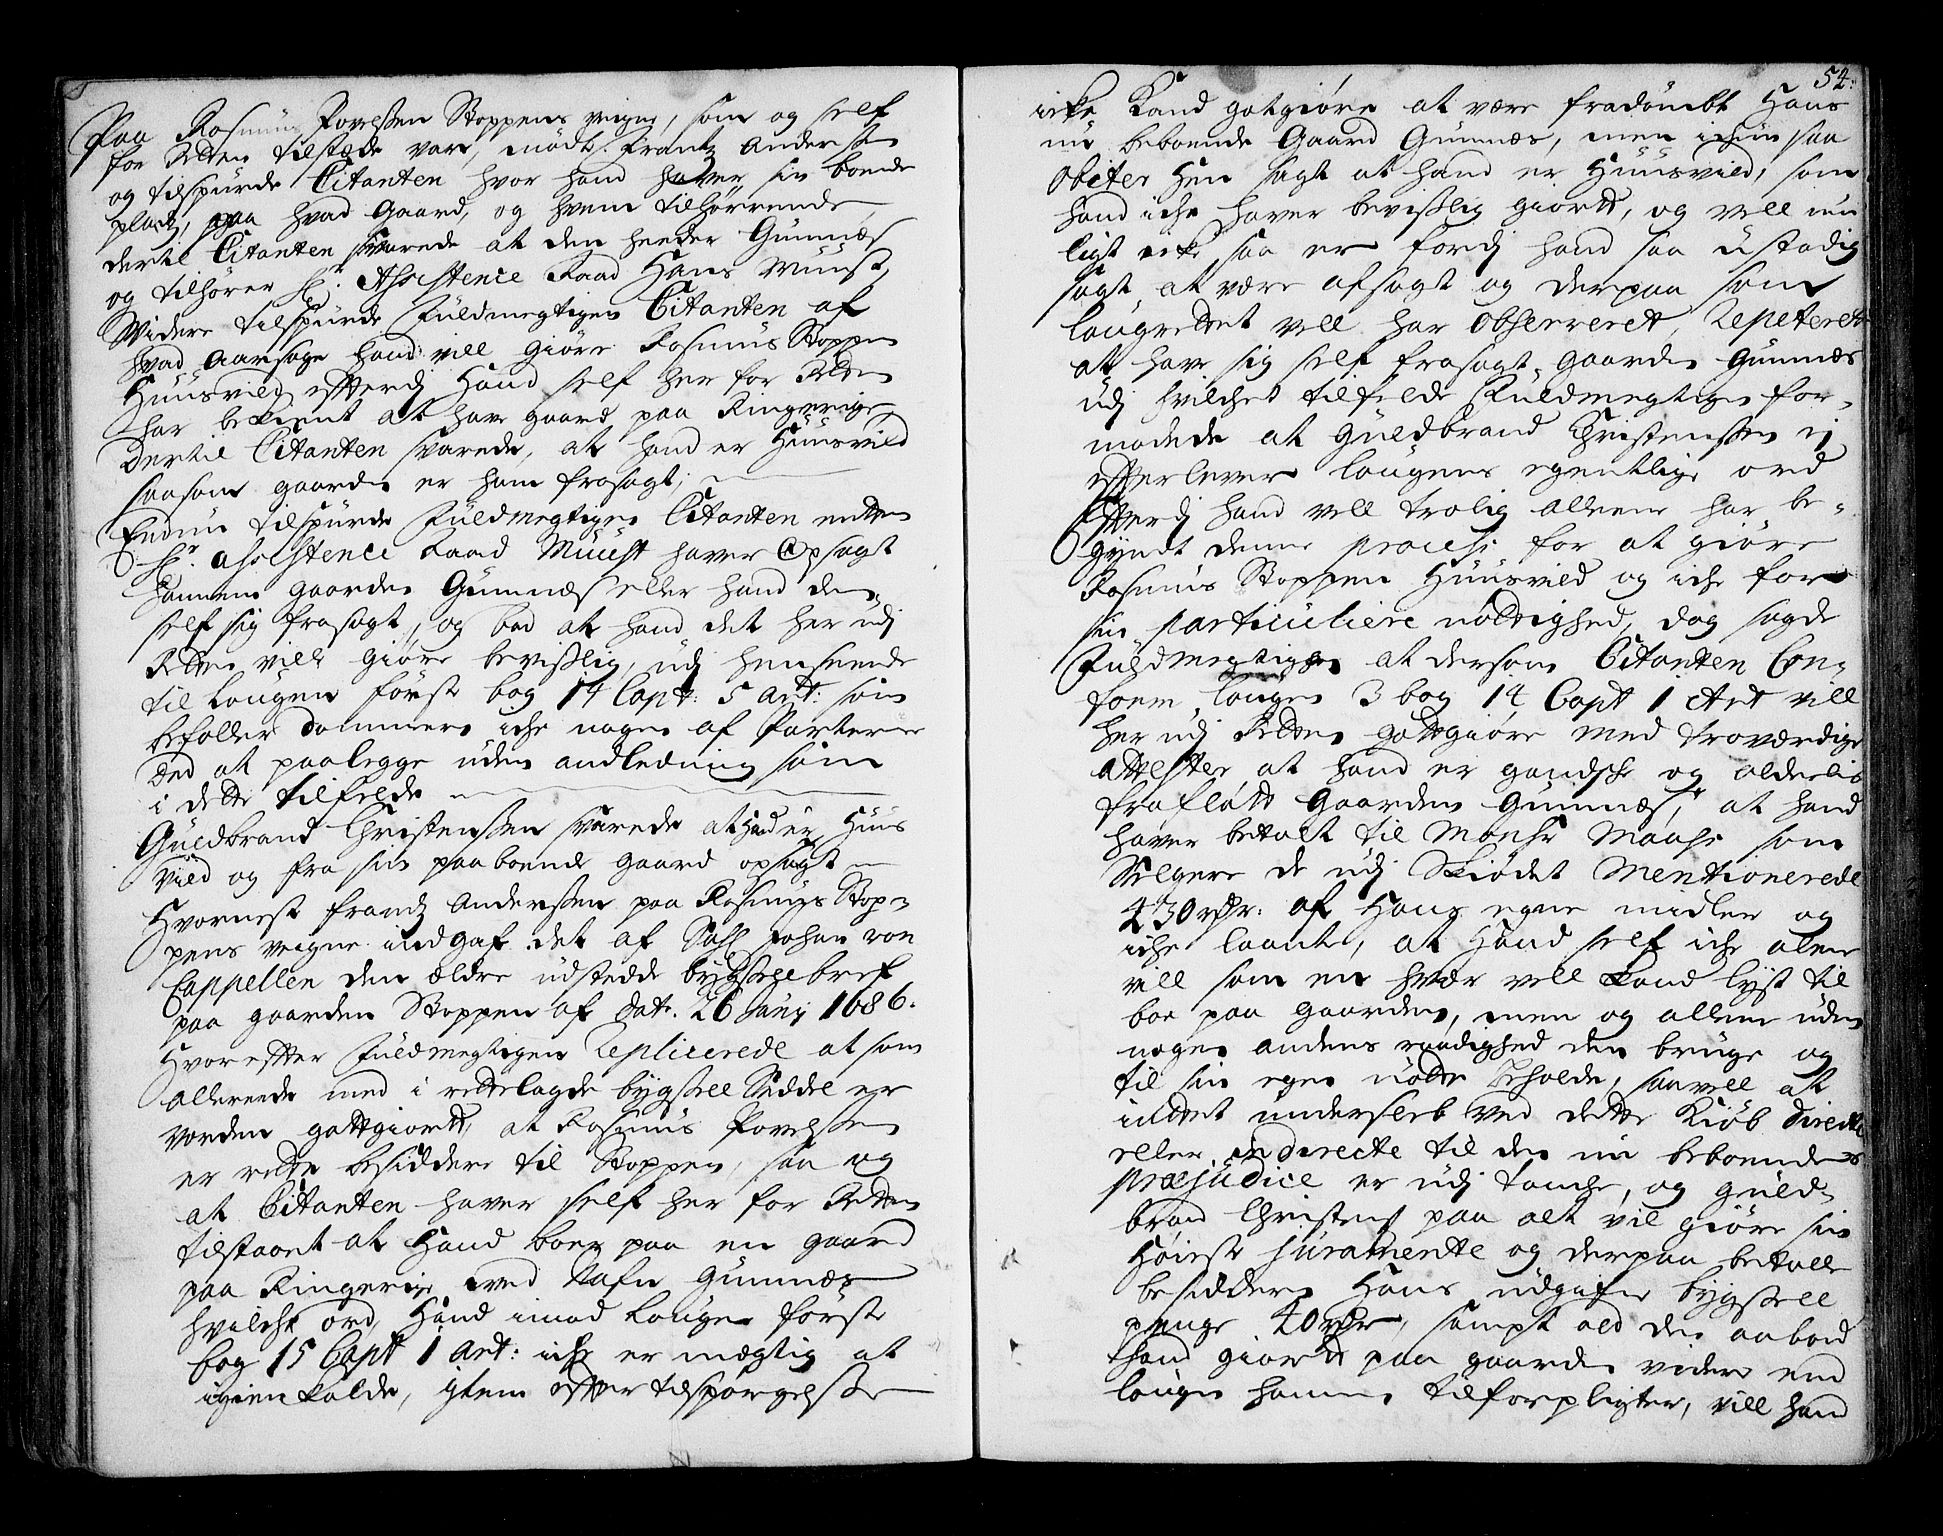 Paa Rasmus Povelsen Stoppens veigne, som og self
for Retten tilstæde var, mødte Frantz Andersen
og tilspurde Citanten hvor hand haver sin boende
platz, paa hvad Gaard, og hvem tilhørrende,
dertil Citanten svarede at den heeder Gunnæs
og tilhører Hr. Assistence Raad Hans Must,
Widere tilspurde Fuldmegtigen Citanten af
hvad Aarsage hand vill giøre Rasmus Stoppen
Huusvild efterdj Hand self her for Retten
har bekient at have gaard paa Ringerige,
dertil Citanten svarede, at hand er Huusvild
saasom gaarden er ham frasagt;
Endnu tilspurde Fuldmegtigen Citanten enten
Hr. Assistence Raad Must haver Opsagt
hannem gaarden Gunnæs eller hand den
self sig frasagt, og bad at hand det her udj
Retten ville giøre bevißlig, udj henseende
til Lougens første bog 14 Capt: 5 Art: som
befaller dommeren iche nogen af Parterne
Eed at paalegge uden andledning som
i dette tilfelde
Guldbrand Christensen svarede at Hand er Huus
vild og fra sin paaboende gaard opsagt
Hvornest Frandz Andersen paa Rasmus Stop-
pens veigne indgaf det af Sahl. Johan von
Cappellen den ældre udstedde bygselbref
paa gaarden Stoppen af dato 26 Junj 1686.
Hvorefter Fuldmegtigen Replicerede at som
allereede med i rettelagde bygsell Seddel er
vorden gottgiordt, at Rasmus Povelsen
er rette besiddere til Stoppen, saa og
at Citanten haver self her for Retten
tilstaaet at Hand boer paa en gaard
paa Ringerige ved Nafn Gunnæs
hvilche ord, Hand imod Lougens første
bog 15 Capt 1 Art: iche er mægtig at
igienkalde, item efter tilspørgelse
54:
icke Kand gotgiøre at være fradømbt Hans
nu beboende Gaard Gunnæs, men ichun saa
obiter hen sagt at hand er Huusvild, som
hand iche haver bevißlig giordt, og vell mu
ligt icke saa er fordj hand saa ustadig
sagt at være afsagt og derpaa som
laugrettet vell har Observeret, Repeteret
at have sig self frasagt gaarden Gunnæs
udj hvilchet tilfelde Fuldmegtigen for-
modede at Guldbrand Christensen ej
efterlever lougens egentlige ord
Efterdj hand vell trolig alleene har be-
gyndt denne process for at giøre
Rasmus Stoppen Huusvild og iche for
sin particuliere nøttighed, dog sagde
Fuldmegtigen at dersom Citanten Con-
form lougens 3 bog 14 Capt 1 Art vill
her udj Retten gottgiøre med troværdige
Attester at hand er gandsche og alderlis
frafløtt Gaarden Gunnæs, at hand
haver betalt til Monsr Maass som
Selgere de udj Skiødet Mentionerede
430 rdr: af Hans egne midler og
iche laante, at Hand self iche alene
vill som en hver vell kand lyst til
boe paa gaarden, men og alleene uden
nogen andens raadighed den bruge og
til sin egen nøtte beholde, saavell at
intet underslæb ved dette Kiøb directe
eller indirecte til den nu beboendes
præjudice er udj tanche, og Guld-
brand Christens: paa alt vil giøre sin
Høieste Juramente og derpaa betalle
besidderen Hans udgifne bygsell
penge 40 rdr, sampt ald den aabod
hand giordt paa gaarden videre end
lougen hannem tilforpligter, vill hand